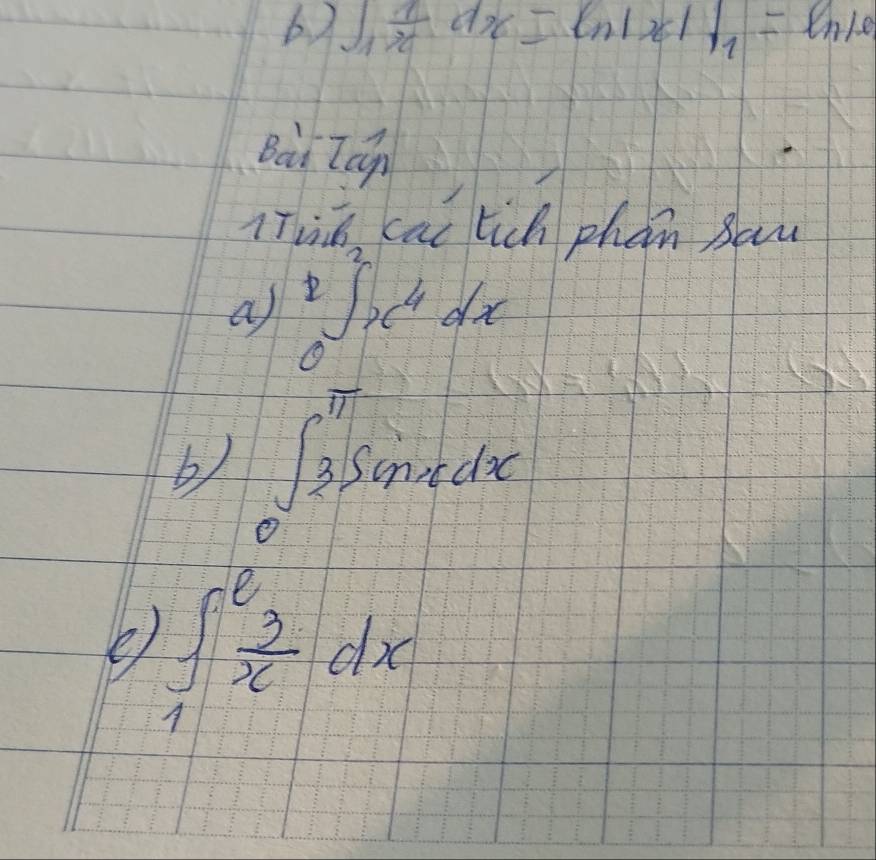 b) ∫₁ 1/x dx = ln|x| |₁ = ln|e
Bài Tập
1 Tính các tích phân sau
a) ∫₀² x⁴ dx
b) ∫₀^π 3 Sinx dx
c) ∫₁^e 3/x dx